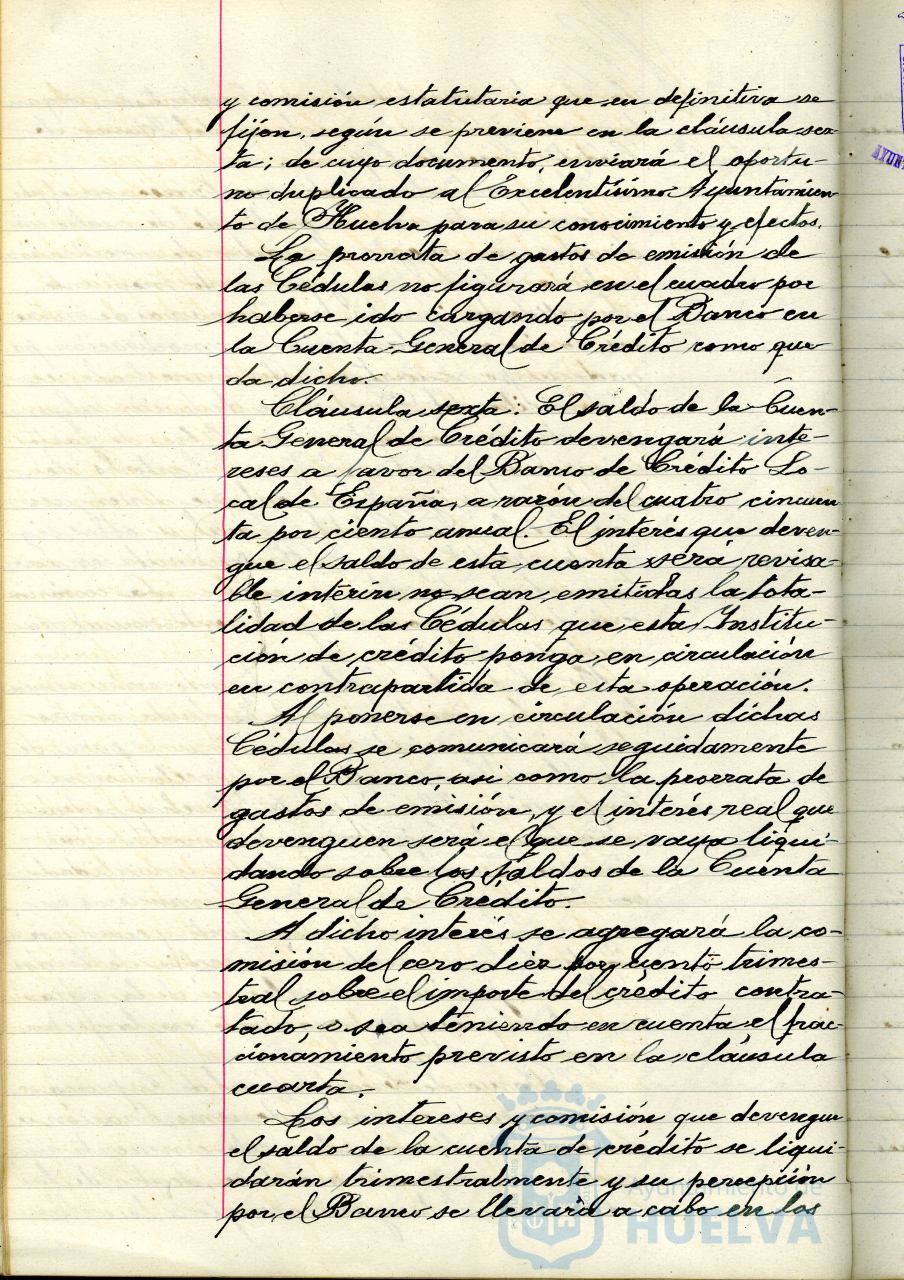 y comisión estatutaria que en definitiva se
fijen, según se previene en la cláusula sex-
ta; de cuyo documento, enviará el oportu-
no duplicado al Excelentísimo Ayuntamien-
to de Huelva para su conocimiento y efectos.
La prorrata de gastos de emisión de
las Cédulas no figurará en el cuadro por
haberse ido cargando por el Banco en
la Cuenta General de Crédito como que
da dicho.
Cláusula sexta: El saldo de la Cuen-
ta General de Crédito devengará inte-
reses a favor del Banco de Crédito Lo-
cal de España, a razón del cuatro cincuen
ta por ciento anual. El interés que deven-
gue el saldo de esta cuenta será revisa-
ble interín no sean emitidas la tota-
lidad de las Cédulas que esta Institu-
ción de crédito ponga en circulación
en contrapartida de esta operación.
Al ponerse en circulación dichas
Cédulas se comunicará seguidamente
por el Banco, asi como la prorrata de
gastos de emisión, y el interés real que
devenguen será el que se vaya liqui-
dando sobre los saldos de la Cuenta
General de Crédito.
A dicho interés se agregará la co-
misión del cero diez por ciento trimes-
tral sobre el importe del credito contra-
tado, o sea teniendo en cuenta el frac-
cionamiento previsto en la cláusula
cuarta.
Los intereses y comisión que devengue
el saldo de la cuenta de crédito se liqui-
darán trimestralmente y su percepción
por el Banco se llevará a cabo en los
Ayuntamiento de
HUELVA